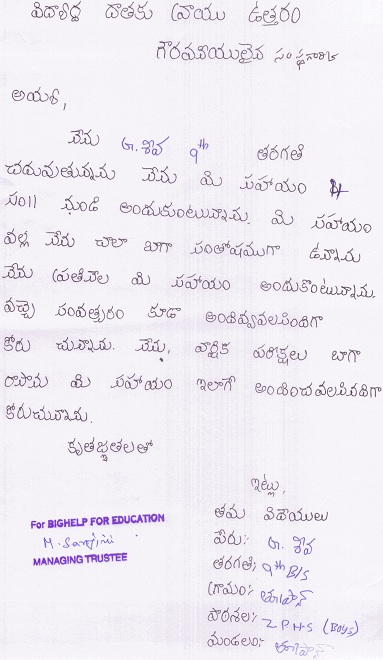 విద్యార్థి దాతకు వ్రాయు ఉత్తరం
గౌరవనీయులైన సంస్థగారికి
అయ్యా,
నేను G. శివ 9th తరగతి
చదువుతున్నాను నేను మీ సహాయం 4
సం|| నుండి అందుకుంటున్నాను. మీ సహాయం
వల్ల నేను చాలా బాగా సంతోషముగా ఉన్నాను
నేను ప్రతినెల మీ సహాయం అందుకొంటున్నాను.
వచ్చే సంవత్సరం కూడా అందివ్వవలసిందిగా
కోరు చున్నాను. నేను, వార్షిక పరీక్షలు బాగా
రాసాను మీ సహాయం ఇలాగే అందించవలసినదిగా
కోరుచున్నాను.
కృతజ్ఞతలతో
ఇట్లు,
తమ విధేయులు
పేరు: G. శివ
తరగతి: 9th B/S
గ్రామం: తూప్రాన్
పాఠశాల: Z P H S (Boys)
మండలం: తూప్రాన్
For BIGHELP FOR EDUCATION
MANAGING TRUSTEE